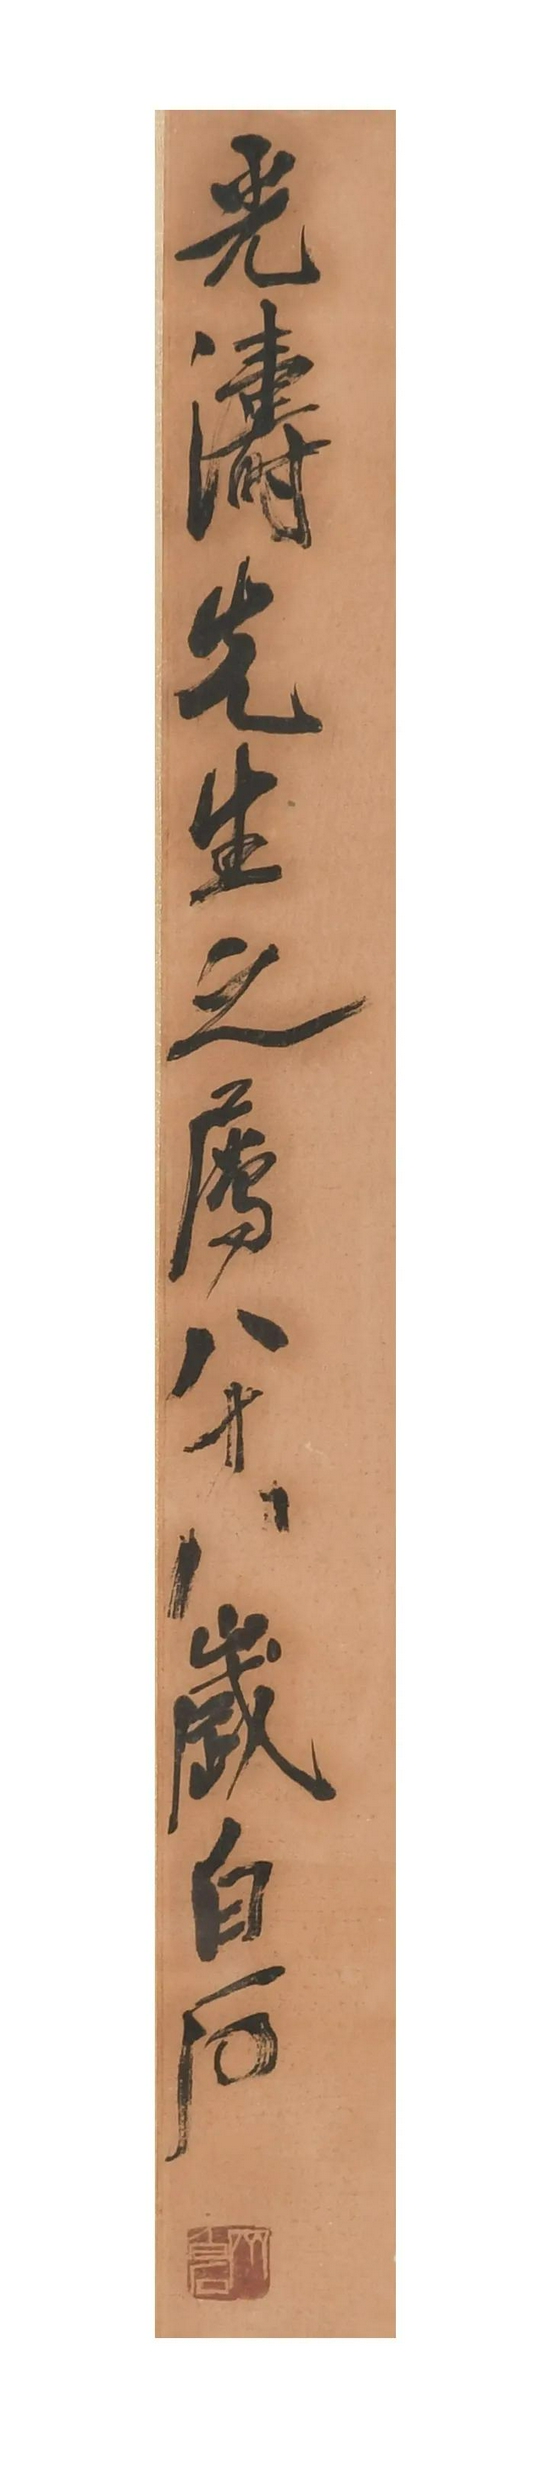 光濤先生之屬八十八歲白石